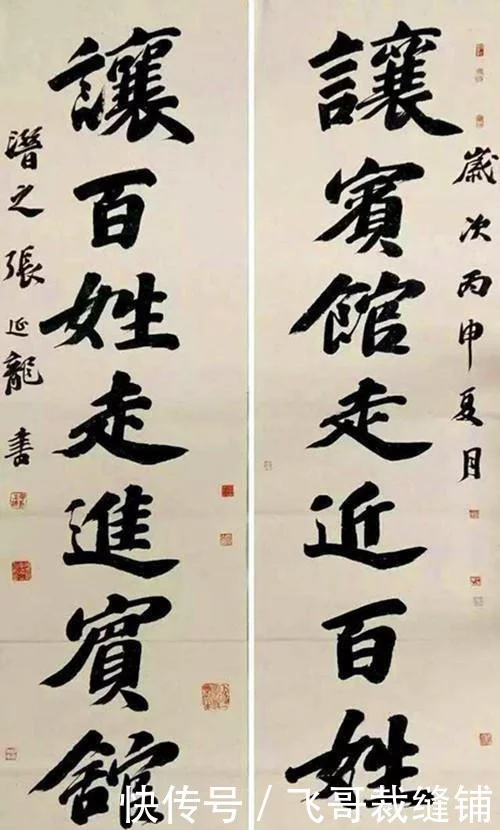 歲次丙申夏月
讓賓館走近百姓
讓百姓走進賓舘
潛之張延龍書
快传号/飞哥裁缝铺